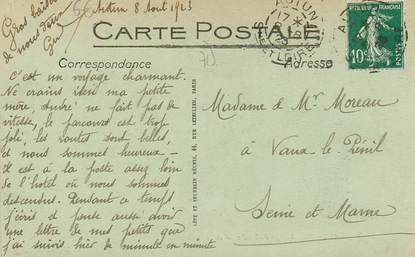 Gros baisers
de nous deux
Autun 8 Aout 1923
CARTE POSTALE
Correspondance
Adresse
C'est un voyage charmant.
Ne crains rien ma petite
mère, André ne fait pas de
vitesse, le parcours est trop
joli, les routes sont belles,
et nous sommes heureux -
Il est à la poste assez loin
de l'hôtel où nous sommes
descendus. Pendant ce temps
j'écris et pense aussi avoir
une lettre de mes petits que
j'ai suivis hier de minute en minute
LÉVY ET NEURDEIN RÉUNIS, 44, RUE LETELLIER, PARIS
Madame de Mr Moreau
à Vaux le Pénil
Seine et Marne
AUTUN
SAÔNE-ET-LOIRE
10c